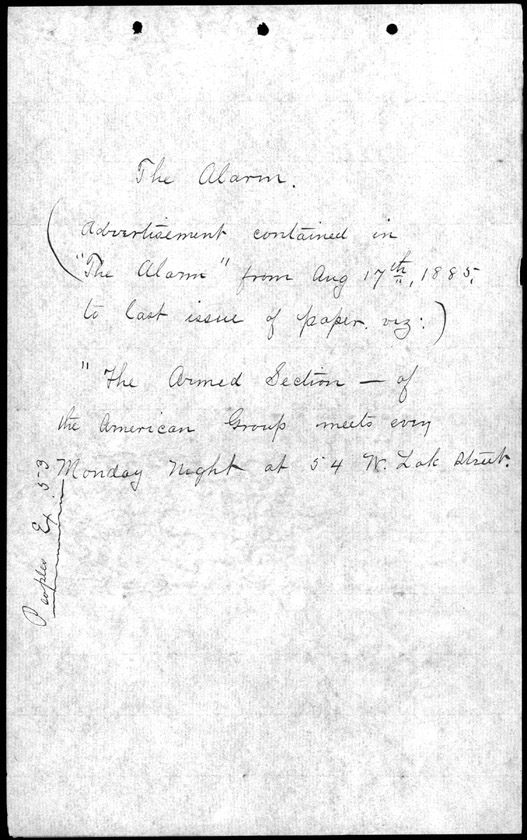 The Alarm.
(Advertisement contained in
"The Alarm" from Aug 17th, 1885,
to last issue of paper. viz:)
"The Armed Section — of
the American Group meets every
Monday Night at 54 W. Lak Street.
Peoples Ex. 53